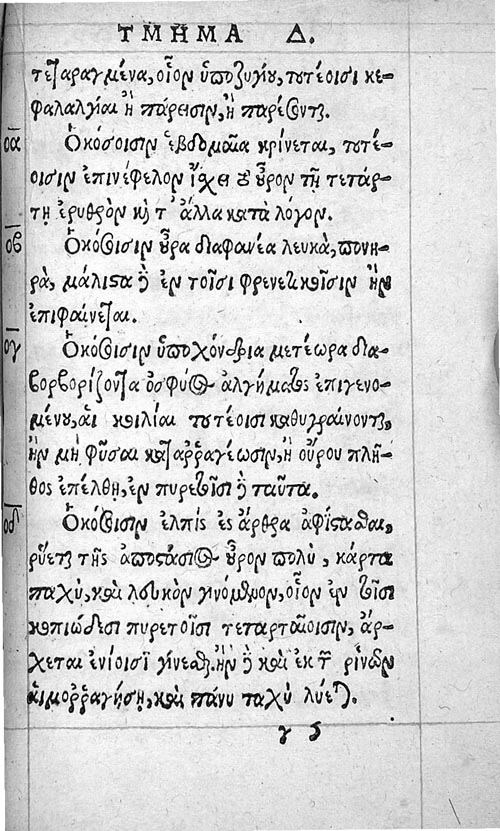 ΤΜΗΜΑ Δ.
τεταραγμένα, οἷον ὑποζυγίου, τουτέοισι κε-
φαλαλγίαι ἢ πάρεισιν, ἢ παρέσονται.
οα Ὁκόσοισιν ἑβδομαῖα κρίνεται, τουτέ-
οισιν ἐπινέφελον ἴσχει τὸ οὖρον τῇ τετάρ-
τῃ ἐρυθρὸν καὶ τ' ἄλλα κατὰ λόγον.
οβ Ὁκόσοισιν οὖρα διαφανέα λευκὰ, πονη-
ρὰ, μάλιστα δὲ ἐν τοῖσι φρενετικοῖσιν ἢν
ἐπιφαίνεται.
ογ Ὁκόσοισιν ὑποχόνδρια μετέωρα δια-
βορβορίζοντα ὀσφύος ἀλγήματος ἐπιγενο-
μένου, αἱ κοιλίαι τουτέοισι καθυγραίνονται,
ἢν μὴ φῦσαι καταῤῥαγέωσιν, ἢ οὔρου πλῆ-
θος ἐπέλθῃ, ἐν πυρετοῖσι δὲ ταῦτα.
οδ Ὁκόσοισιν ἐλπὶς ἐς ἄρθρα ἀφίστασθαι,
ῥύεται τῆς ἀποστάσιος οὖρον πολὺ, κάρτα
παχὺ, καὶ λευκὸν γινόμενον, οἷον ἐν τοῖσι
κοπιώδεσι πυρετοῖσι τεταρταίοισιν, ἄρ-
χεται ἐνίοισι γίνεσθαι. ἢν δὲ καὶ ἐκ τῶν ῥινῶν
αἱμοῤῥαγήσῃ, καὶ πάνυ ταχὺ λύεται.
γ 5